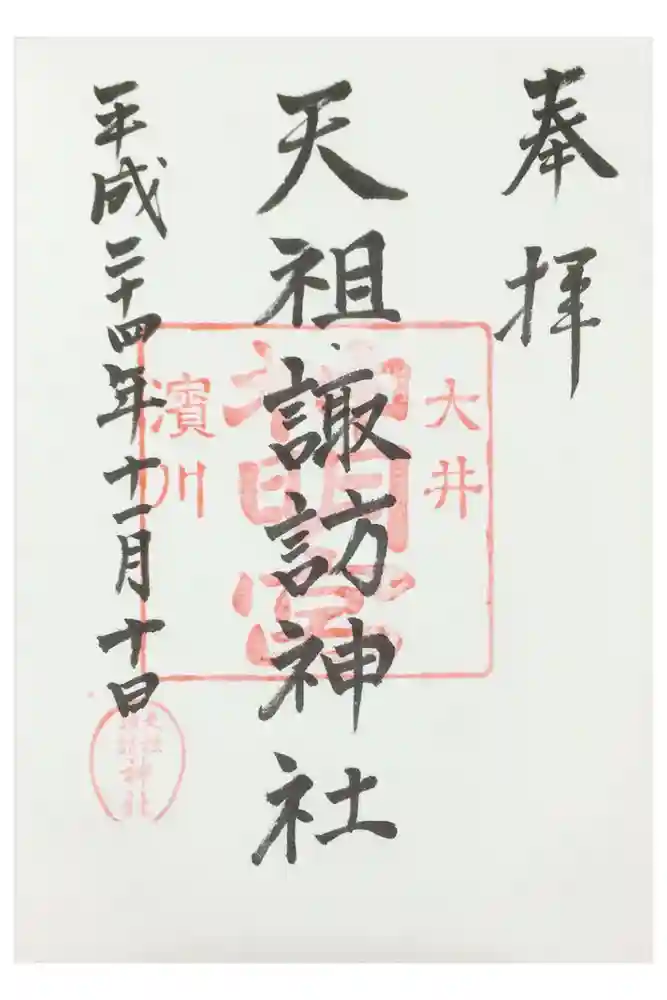 奉拝
大井
天祖・諏訪神社
神明宮
濱川
平成二十四年十一月十日